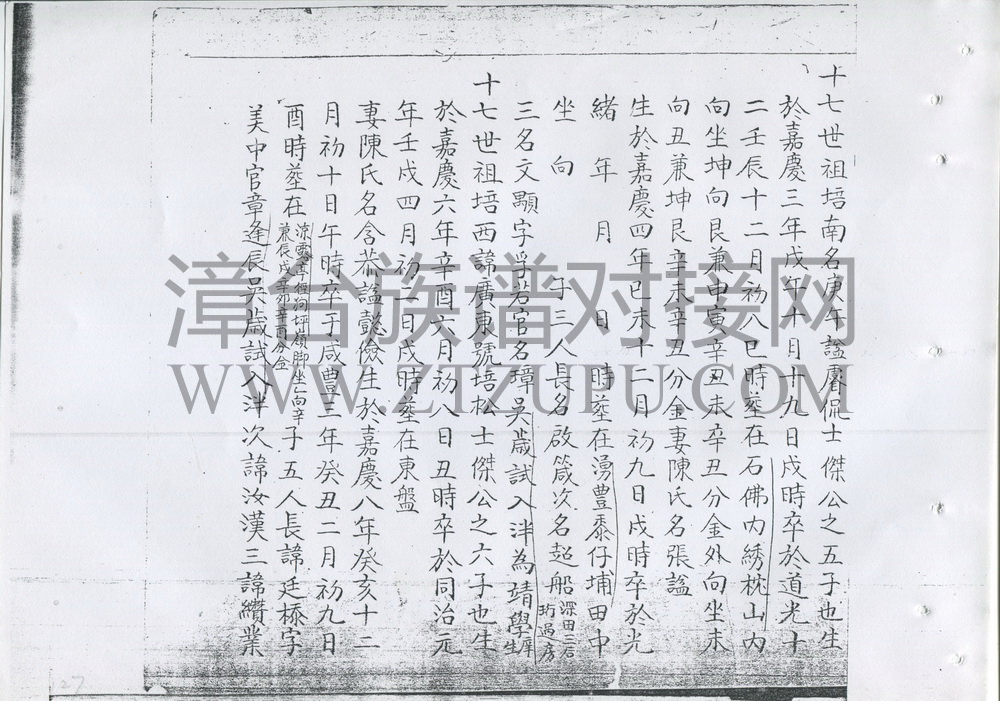 十七世祖培南名庚午謚睿侃士傑公之五子也生
於嘉慶三年戊午十月十九日戌時卒於道光十
二壬辰十二月初八巳時塟在石佛內綉枕山內
向坐坤向艮兼申寅辛丑未辛丑分金外向坐未
向丑兼坤艮辛未辛丑分金妻陳氏名張謚
生於嘉慶四年己未十二月初九日戌時卒於光
緒 年 月 日 時塟在湧豊黍仔埔田中
坐 向 子三人長名啟箴次名超船深田三石圻過房
三名文顯字孚若官名璋吳歲試入泮為靖學庠生
十七世祖培西諱廣東號培松士傑公之六子也生
於嘉慶六年辛酉六月初八日丑時卒於同治元
年壬戌四月初二日戌時塟在東盤
妻陳氏名含恭謚懿儉生於嘉慶八年癸亥十二
月初十日午時卒于咸豊三年癸丑二月初九日
酉時塟在坪嶺脚坐乙向辛兼辰戌辛卯辛酉分金子五人長諱廷標字
美中官章逢辰吳歲試入泮次諱汝漢三諱纘業
27
漳台族谱对接网
WWW.ZTZUPU.COM